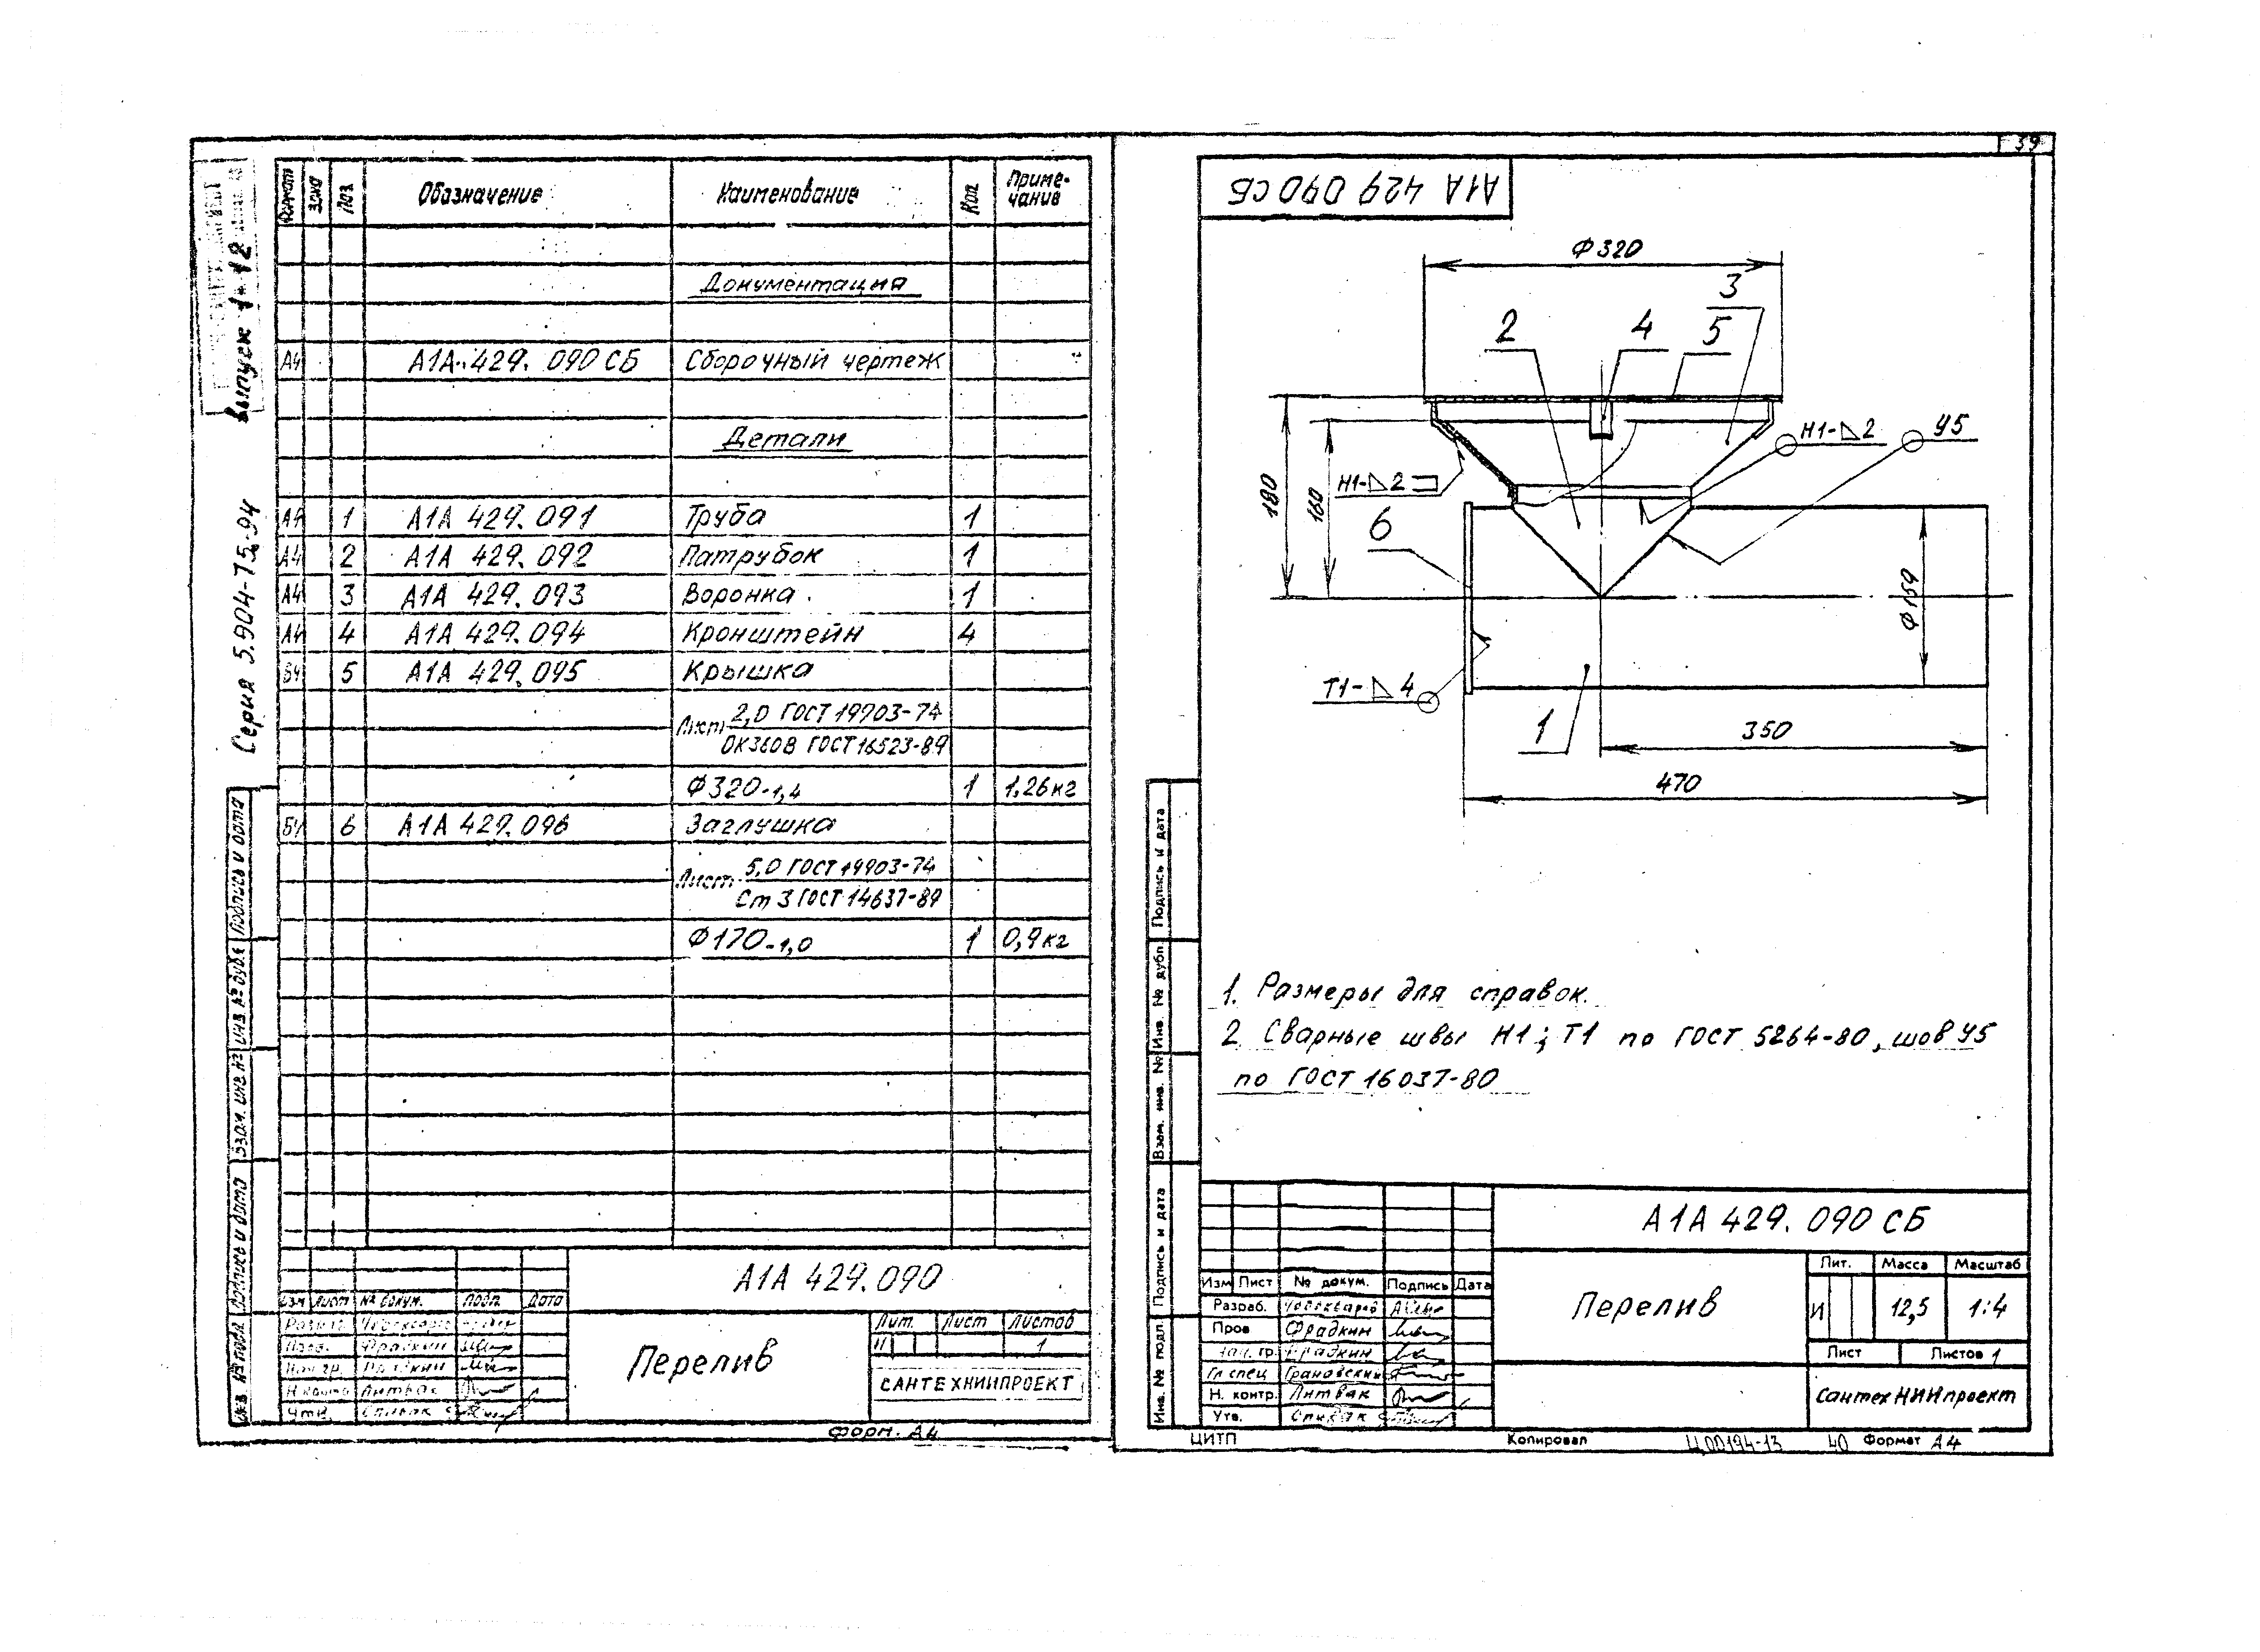 Формат Зона Поз. Обозначение Наименование Кол. Приме-
чание
Документация
А4 А1А 429. 090 СБ Сборочный чертеж
Детали
А4 1 А1А 429. 091 Труба 1
А4 2 А1А 429. 092 Патрубок 1
А4 3 А1А 429. 093 Воронка 1
А4 4 А1А 429. 094 Кронштейн 4
БЧ 5 А1А 429. 095 Крышка
Лист 2,0 ГОСТ 19903-74
ОК360В ГОСТ 16523-89
Ф320-1,4 1 1.26кг
БЧ 6 А1А 429. 096 Заглушка
Лист 5,0 ГОСТ 19903-74
Ст 3 ГОСТ 14637-89
Ф170-1,0 1 0,9кг
А1А 429. 090
Изм Лист № докум. Подп. Дата
Фрадкин
Н контр Литвак
Утв. Спивак
Перелив
Лит. Лист Листов
И 1
САНТЕХНИИПРОЕКТ
Форм. А4
Серия 5.904-75.94 выпуск 1-12
Подпись и дата
Инв. № дубл.
Взам. инв. №
Подпись и дата
Инв. № подл.
39
А1А 429 090 СБ
Ф320
3
2 4 5
Н1-⊿2 У5
180
160
Н1-⊿2
6
Ф159
Т1-⊿4
1
350
470
1. Размеры для справок.
2. Сварные швы Н1; Т1 по ГОСТ 5264-80, шов У5
по ГОСТ 16037-80
Подпись и дата
Инв. № дубл.
Взам. инв. №
Подпись и дата
Инв. № подл.
А1А 429. 090 СБ
Изм Лист № докум. Подпись Дата
Разраб.
Пров Фрадкин
Нач. гр. Фрадкин
Гл спец Грановский
Н. контр. Литвак
Утв. Спивак
Перелив
Лит. Масса Масштаб
И 12,5 1:4
Лист Листов 1
СантехНИИпроект
ЦИТП Копировал Ц00194-13 40 Формат А4